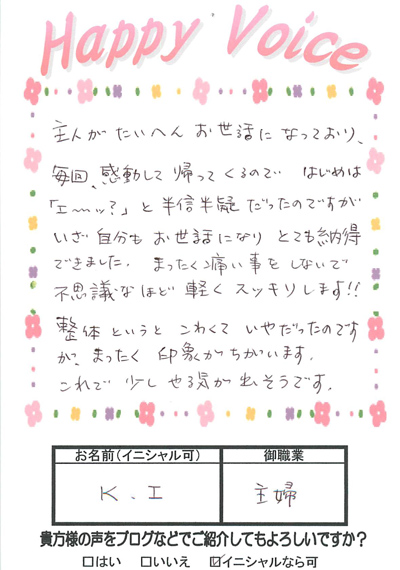 Happy Voice
主人がたいへんお世話になっており、
毎回、感動して帰ってくるので はじめは
「エーッ?」と半信半疑だったのですが
いざ自分も お世話になり とても納得
できました。まったく痛い事をしないで
不思議なほど 軽く スッキリします!!
整体というと こわくて いやだったのです
が、まったく 印象がちがいます。
これで 少し やる気が出そうです。
お名前(イニシャル可) 御職業
K.I 主婦
貴方様の声をブログなどでご紹介してもよろしいですか?
□はい □いいえ ☑イニシャルなら可